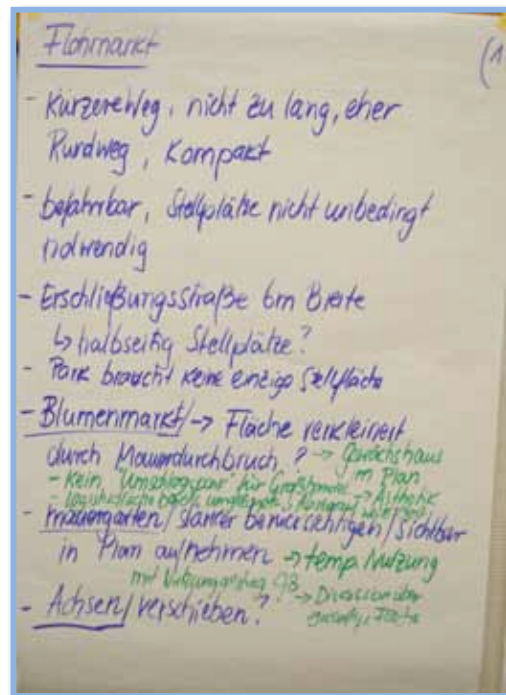 Flohmarkt
(1
- Kürzere Weg, nicht zu lang, eher
Rundweg, Kompakt
- befahrbar, Stellplätze nicht unbedingt
notwendig
- Erschließungsstraße 6m Breite
↳ halbseitig Stellplätze?
- Park braucht keine einzige Stellfläche
- Blumenmarkt/→ Fläche verkleinert
durch Mauerdurchbruch? → Gewächshaus
in Plan
- kein "Umschlagplatz" für Großhandel → Ästhetik
- Mauergarten/stärker berücksichtigen/sichtbar
in Plan aufnehmen → temp. Nutzung
mit
- Achsen/verschieben? → Diskussion über